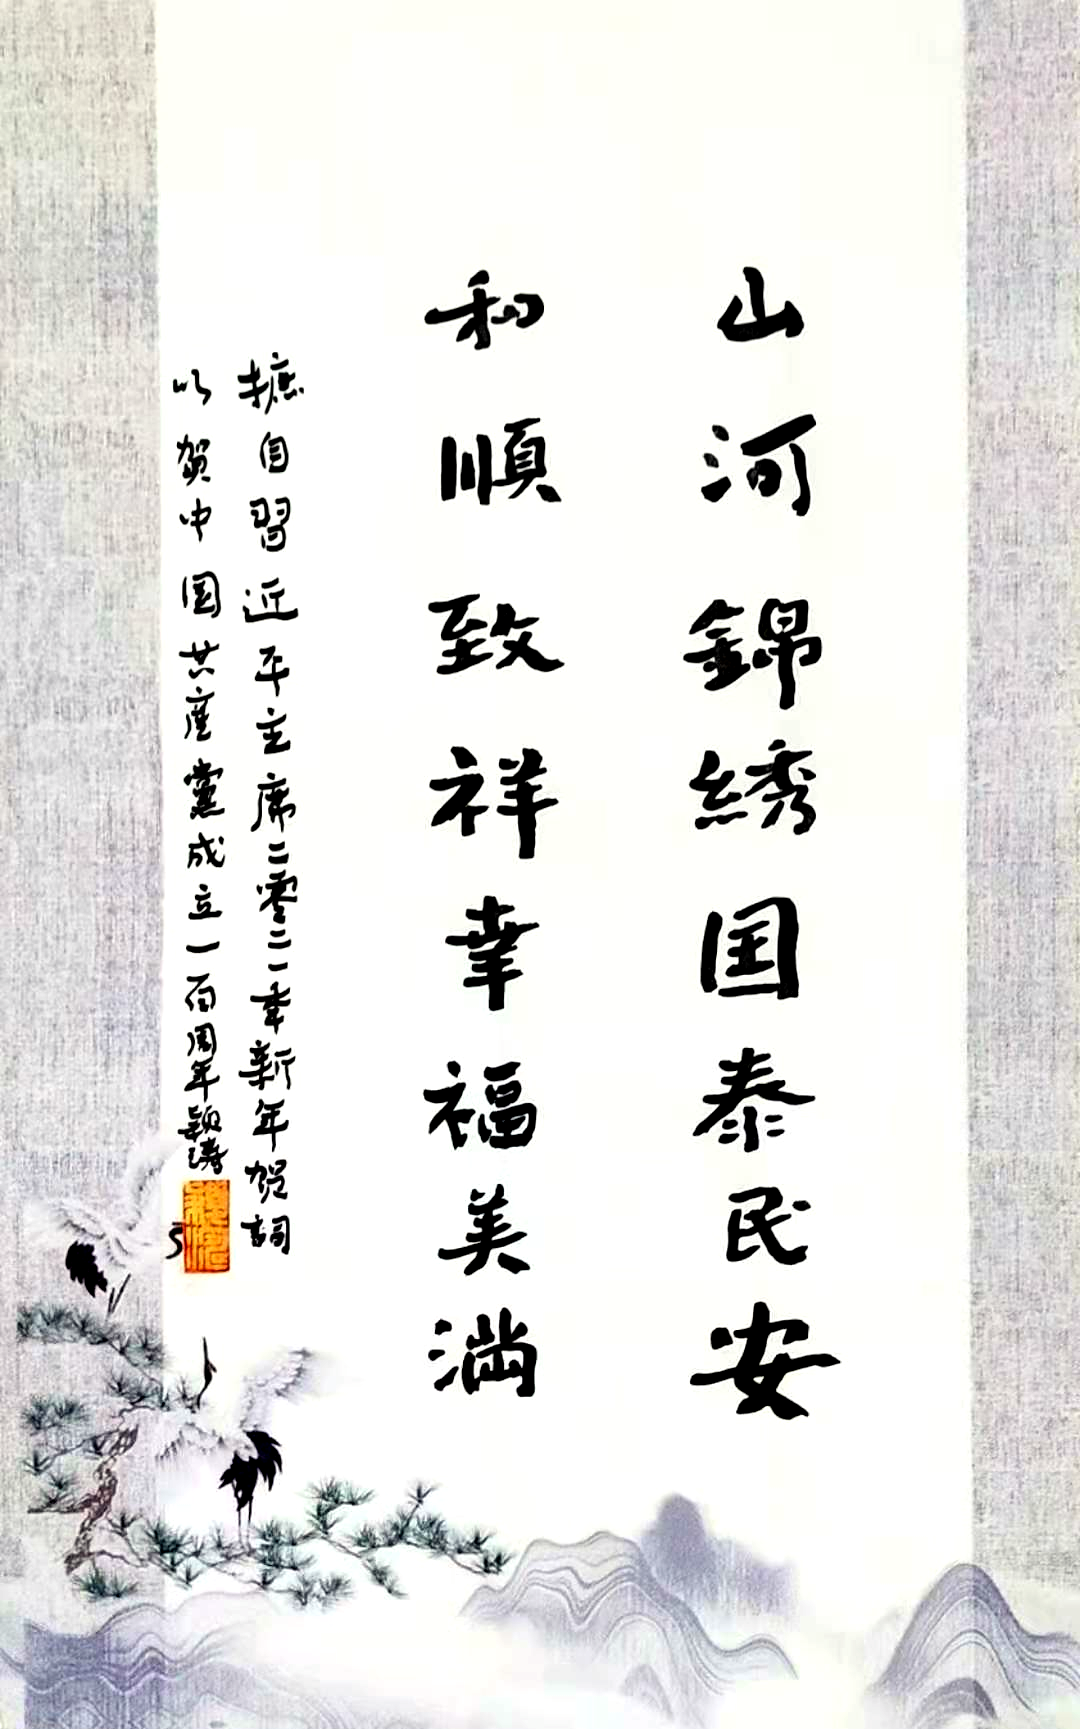 山河錦绣国泰民安
和順致祥幸福美满
摭自習近平主席二零二一年新年贺詞
以贺中国共產黨成立一百周年颖涛